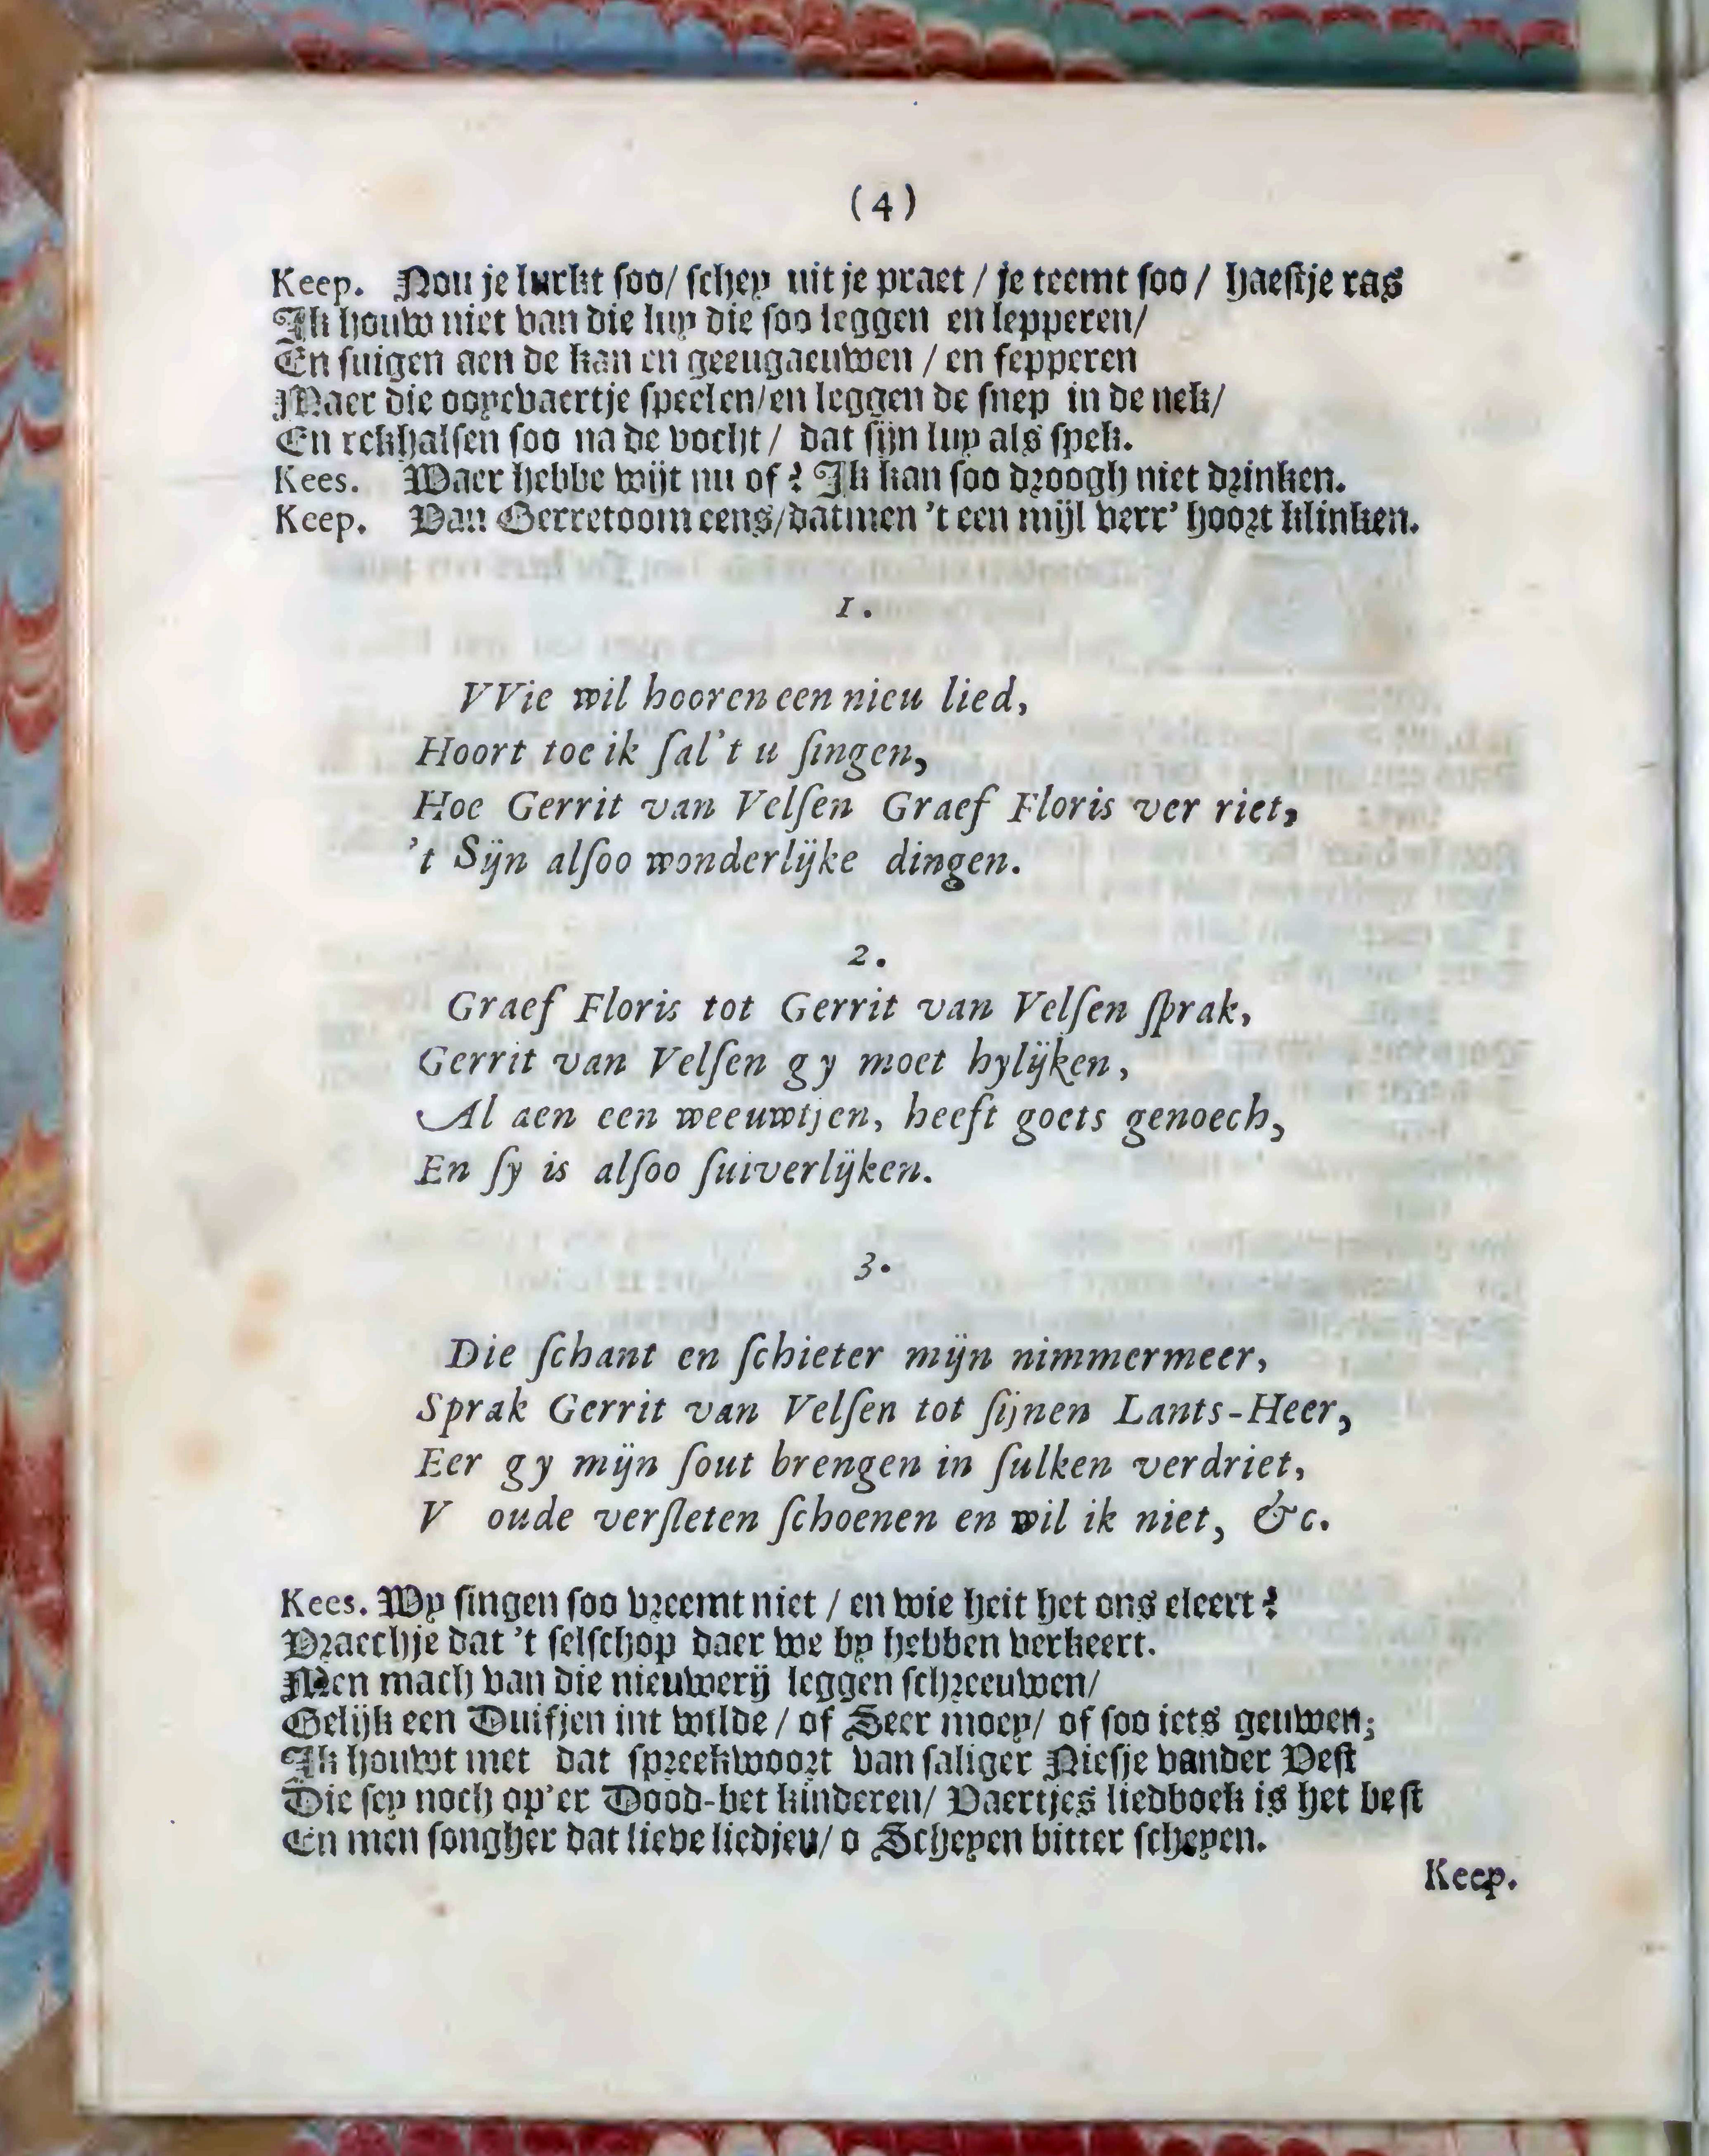 (4)
Keep. Nou je lurkt soo/ schey uit je praet / je teemt soo / haestje ras
Ik houw niet van die luy die soo leggen en lepperen/
En suigen aen de kan en geeugaeuwen / en fepperen
Maer die ooyevaertje speelen/en leggen de snep in de nek/
En rekhalsen soo na de vocht / dat sijn luy als spek.
Kees. Waer hebbe wijt nu of? Ik kan soo droogh niet drinken.
Keep. Van Gerretoom eens/datmen 't een mijl verr' hoort klinken.
1.
VVie wil hooren een nieu lied,
Hoort toe ik ſal't u ſingen,
Hoe Gerrit van Velſen Graef Floris ver riet,
't Sijn alſoo wonderlijke dingen.
2.
Graef Floris tot Gerrit van Velſen ſprak,
Gerrit van Velſen gy moet hylijken,
Al aen een weeuwtjen, heeft goets genoech,
En ſy is alſoo ſuiverlijken.
3.
Die ſchant en ſchieter mijn nimmermeer,
Sprak Gerrit van Velſen tot ſijnen Lants-Heer,
Eer gy mijn ſout brengen in ſulken verdriet,
V oude verſleten ſchoenen en wil ik niet, &c.
Kees. Wy singen soo vreemt niet / en wie heit het ons eleert?
Vraechje dat 't selschop daer we by hebben verkeert.
Men mach van die nieuwerij leggen schreeuwen/
Gelijk een Duifjen int wilde / of Seer moey/ of soo iets geuwen;
Ik houwt met dat spreekwoort van saliger Niesje vander Vest
Die sey noch op'er Dood-bet kinderen/ Vaertjes liedboek is het best
En men songher dat lieve liedjeu/ o Scheyen bitter scheyen.
Keep.